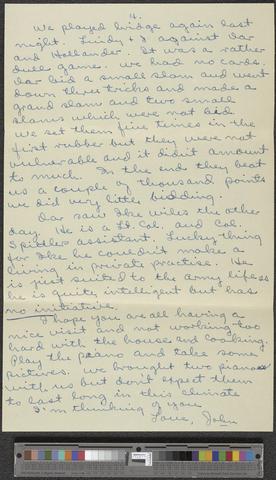 4.
We played bridge again last
night. Lindy + I against Dar
and Hollander. It was a rather
dull game. We had no cards.
Dar bid a small slam and went
down three tricks and made a
grand slam and two small
slams which were not bid.
We set them five times in the
first rubber but they were not
vulnerable and it didn't amount
to much. In the end they beat
us a couple of thousand points
we did very little bidding.
Dar saw Ike Wiles the other
day. He is a Lt. Col. and Col.
Spittler assistant. Lucky thing
for Ike he couldn't make a
living in private practise. He
is just suited to the army life as
he is quite intelligent but has
no initiative.
I hope you are all having a
nice visit and not working too
hard with the house and cooking.
Play the piano and take some
pictures. We brought two pianos
with us but don't expect them
to last long in this climate
I'm thinking of you.
Love, John